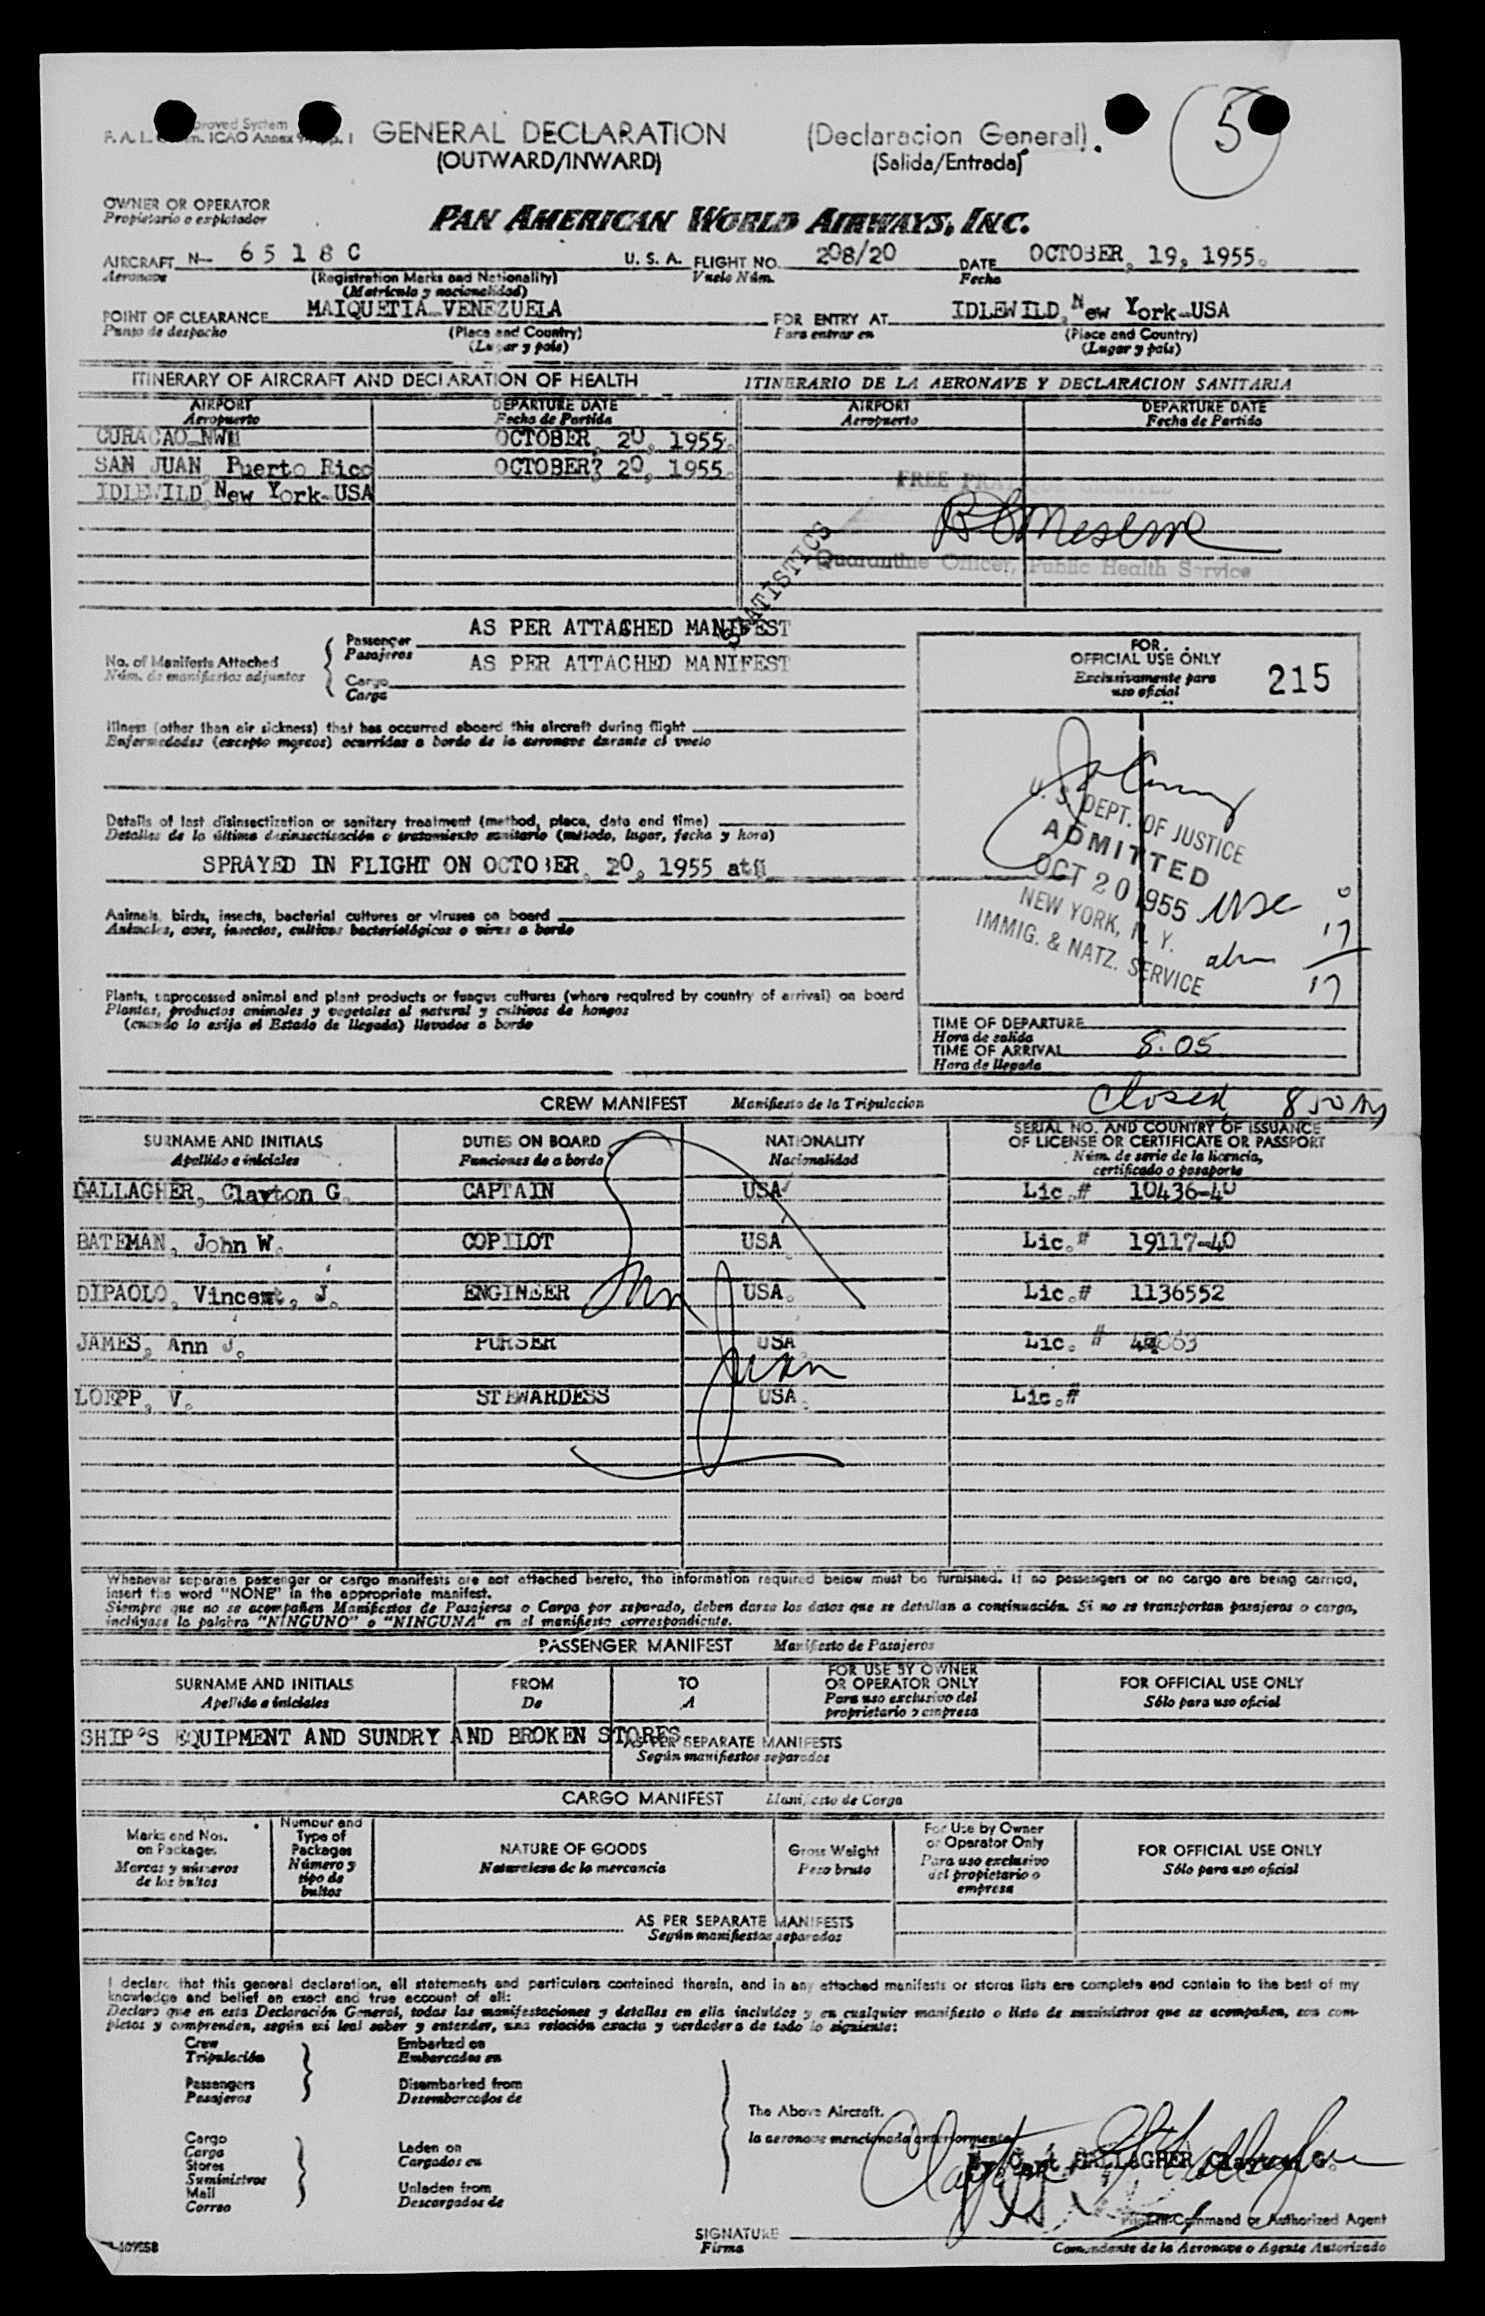 GENERAL DECLARATION (Declaracion General).
(OUTWARD/INWARD) (Salida/Entrada)
5
OWNER OR OPERATOR
Propietario o explotador
PAN AMERICAN WORLD AIRWAYS, INC.
AIRCRAFT N- 6518C U. S. A. FLIGHT NO. 208/20 DATE OCTOBER, 19, 1955.
Aeronave (Registration Marks and Nationality) Vuelo Núm. Fecha
(Matrícula y nacionalidad)
POINT OF CLEARANCE MAIQUETIA-VENEZUELA FOR ENTRY AT IDLEWILD, New York-USA
Punto de despacho (Place and Country) Para entrar en (Place and Country)
(Lugar y país) (Lugar y país)
ITINERARY OF AIRCRAFT AND DECLARATION OF HEALTH ITINERARIO DE LA AERONAVE Y DECLARACION SANITARIA
AIRPORT DEPARTURE DATE AIRPORT DEPARTURE DATE
Aeropuerto Fecha de Partida Aeropuerto Fecha de Partida
CURACAO NWI OCTOBER, 20, 1955.
SAN JUAN, Puerto Rico OCTOBER? 20, 1955.
IDLEWILD, New York-USA
FREE PRATIQUE GRANTED
Quarantine Officer, Public Health Service
STATISTICS
No. of Manifests Attached
Núm. de manifiestos adjuntos
Passenger AS PER ATTACHED MANIFEST
Pasajeros
Cargo AS PER ATTACHED MANIFEST
Carga
FOR
OFFICIAL USE ONLY
Exclusivamente para
uso oficial
215
Illness (other than air sickness) that has occurred aboard this aircraft during flight
Enfermedades (excepto mareos) ocurridas a bordo de la aeronave durante el vuelo
Details of last disinsectization or sanitary treatment (method, place, date and time)
Detalles de la última desinsectización o tratamiento sanitario (método, lugar, fecha y hora)
SPRAYED IN FLIGHT ON OCTOBER, 20, 1955 at
U. S. DEPT. OF JUSTICE
ADMITTED
OCT 20 1955
NEW YORK, N. Y.
IMMIG. & NATZ. SERVICE
usc 0
17
17
Animals, birds, insects, bacterial cultures or viruses on board
Animales, aves, insectos, cultivos bacteriológicos o virus a bordo
Plants, unprocessed animal and plant products or fungus cultures (where required by country of arrival) on board
Plantas, productos animales y vegetales al natural y cultivos de hongos
(cuando lo exija el Estado de llegada) llevados a bordo
TIME OF DEPARTURE
Hora de salida
TIME OF ARRIVAL 8.05
Hora de llegada
closed
CREW MANIFEST Manifiesto de la Tripulacion
SURNAME AND INITIALS DUTIES ON BOARD NATIONALITY SERIAL NO. AND COUNTRY OF ISSUANCE
OF LICENSE OR CERTIFICATE OR PASSPORT
Apellido e iniciales Funciones de a bordo Nacionalidad Núm. de serie de la licencia,
certificado o pasaporte
GALLAGHER, Clayton G. CAPTAIN USA Lic.# 10436-40
BATEMAN, John W. COPILOT USA Lic.# 19117-40
DIPAOLO, Vincent, J. ENGINEER USA. Lic.# 1136552
JAMES, Ann J. PURSER USA Lic. #
LOEPP, V. STEWARDESS USA. Lic.#
San Juan
Whenever separate passenger or cargo manifests are not attached hereto, the information required below must be furnished. If no passengers or no cargo are being carried,
insert the word "NONE" in the appropriate manifest.
Siempre que no se acompañen Manifiestos de Pasajeros o Carga por separado, deben darse los datos que se detallan a continuación. Si no se transportan pasajeros o carga,
inclúyase la palabra "NINGUNO" o "NINGUNA" en el manifiesto correspondiente.
PASSENGER MANIFEST Manifiesto de Pasajeros
SURNAME AND INITIALS FROM TO FOR USE BY OWNER OR OPERATOR ONLY FOR OFFICIAL USE ONLY
Apellido e iniciales De A Para uso exclusivo del propietario o empresa Sólo para uso oficial
SHIP'S EQUIPMENT AND SUNDRY AND BROKEN STORES
AS PER SEPARATE MANIFESTS
Según manifiestos separados
CARGO MANIFEST Manifiesto de Carga
Marks and Nos. on Packages Number and Type of Packages NATURE OF GOODS Gross Weight For Use by Owner or Operator Only FOR OFFICIAL USE ONLY
Marcas y números de los bultos Número y tipo de bultos Naturaleza de la mercancía Peso bruto Para uso exclusivo del propietario o empresa Sólo para uso oficial
AS PER SEPARATE MANIFESTS
Según manifiestos separados
I declare that this general declaration, all statements and particulars contained therein, and in any attached manifests or stores lists are complete and contain to the best of my
knowledge and belief an exact and true account of all:
Declaro que en esta Declaración General, todas las manifestaciones y detalles en ella incluídos y en cualquier manifiesto o lista de suministros que se acompañen, son com-
pletos y comprenden, según mi leal saber y entender, una relación exacta y verdadera de todo lo siguiente:
Crew Embarked on
Tripulación Embarcados en
Passengers Disembarked from
Pasajeros Desembarcados de
The Above Aircraft.
la aeronave mencionada anteriormente
Cargo
Carga
Stores
Suministros
Mail
Correo
Laden on
Cargados en
Unladen from
Descargados de
Clayton G. Gallagher
Capt. GALLAGHER Clayton G.
Pilot in Command or Authorized Agent
SIGNATURE
Firma Comandante de la Aeronave o Agente Autorizado